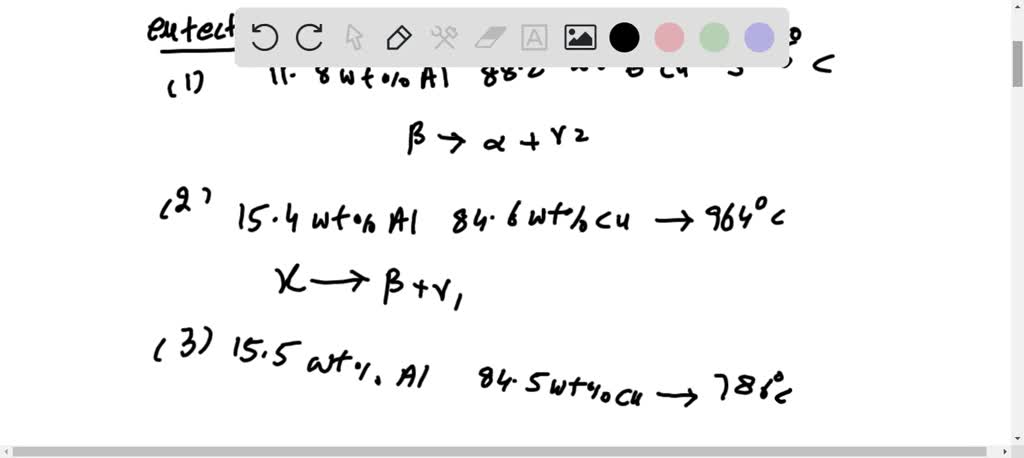 eutect
(1) 11.8wt%Al 88.2 cu c
β → α + γ2
(2) 15.4 wt% Al 84.6wt%cu → 964°c
χ → β+γ1
(3) 15.5 wt%. Al 84.5wt%cu → 786°c